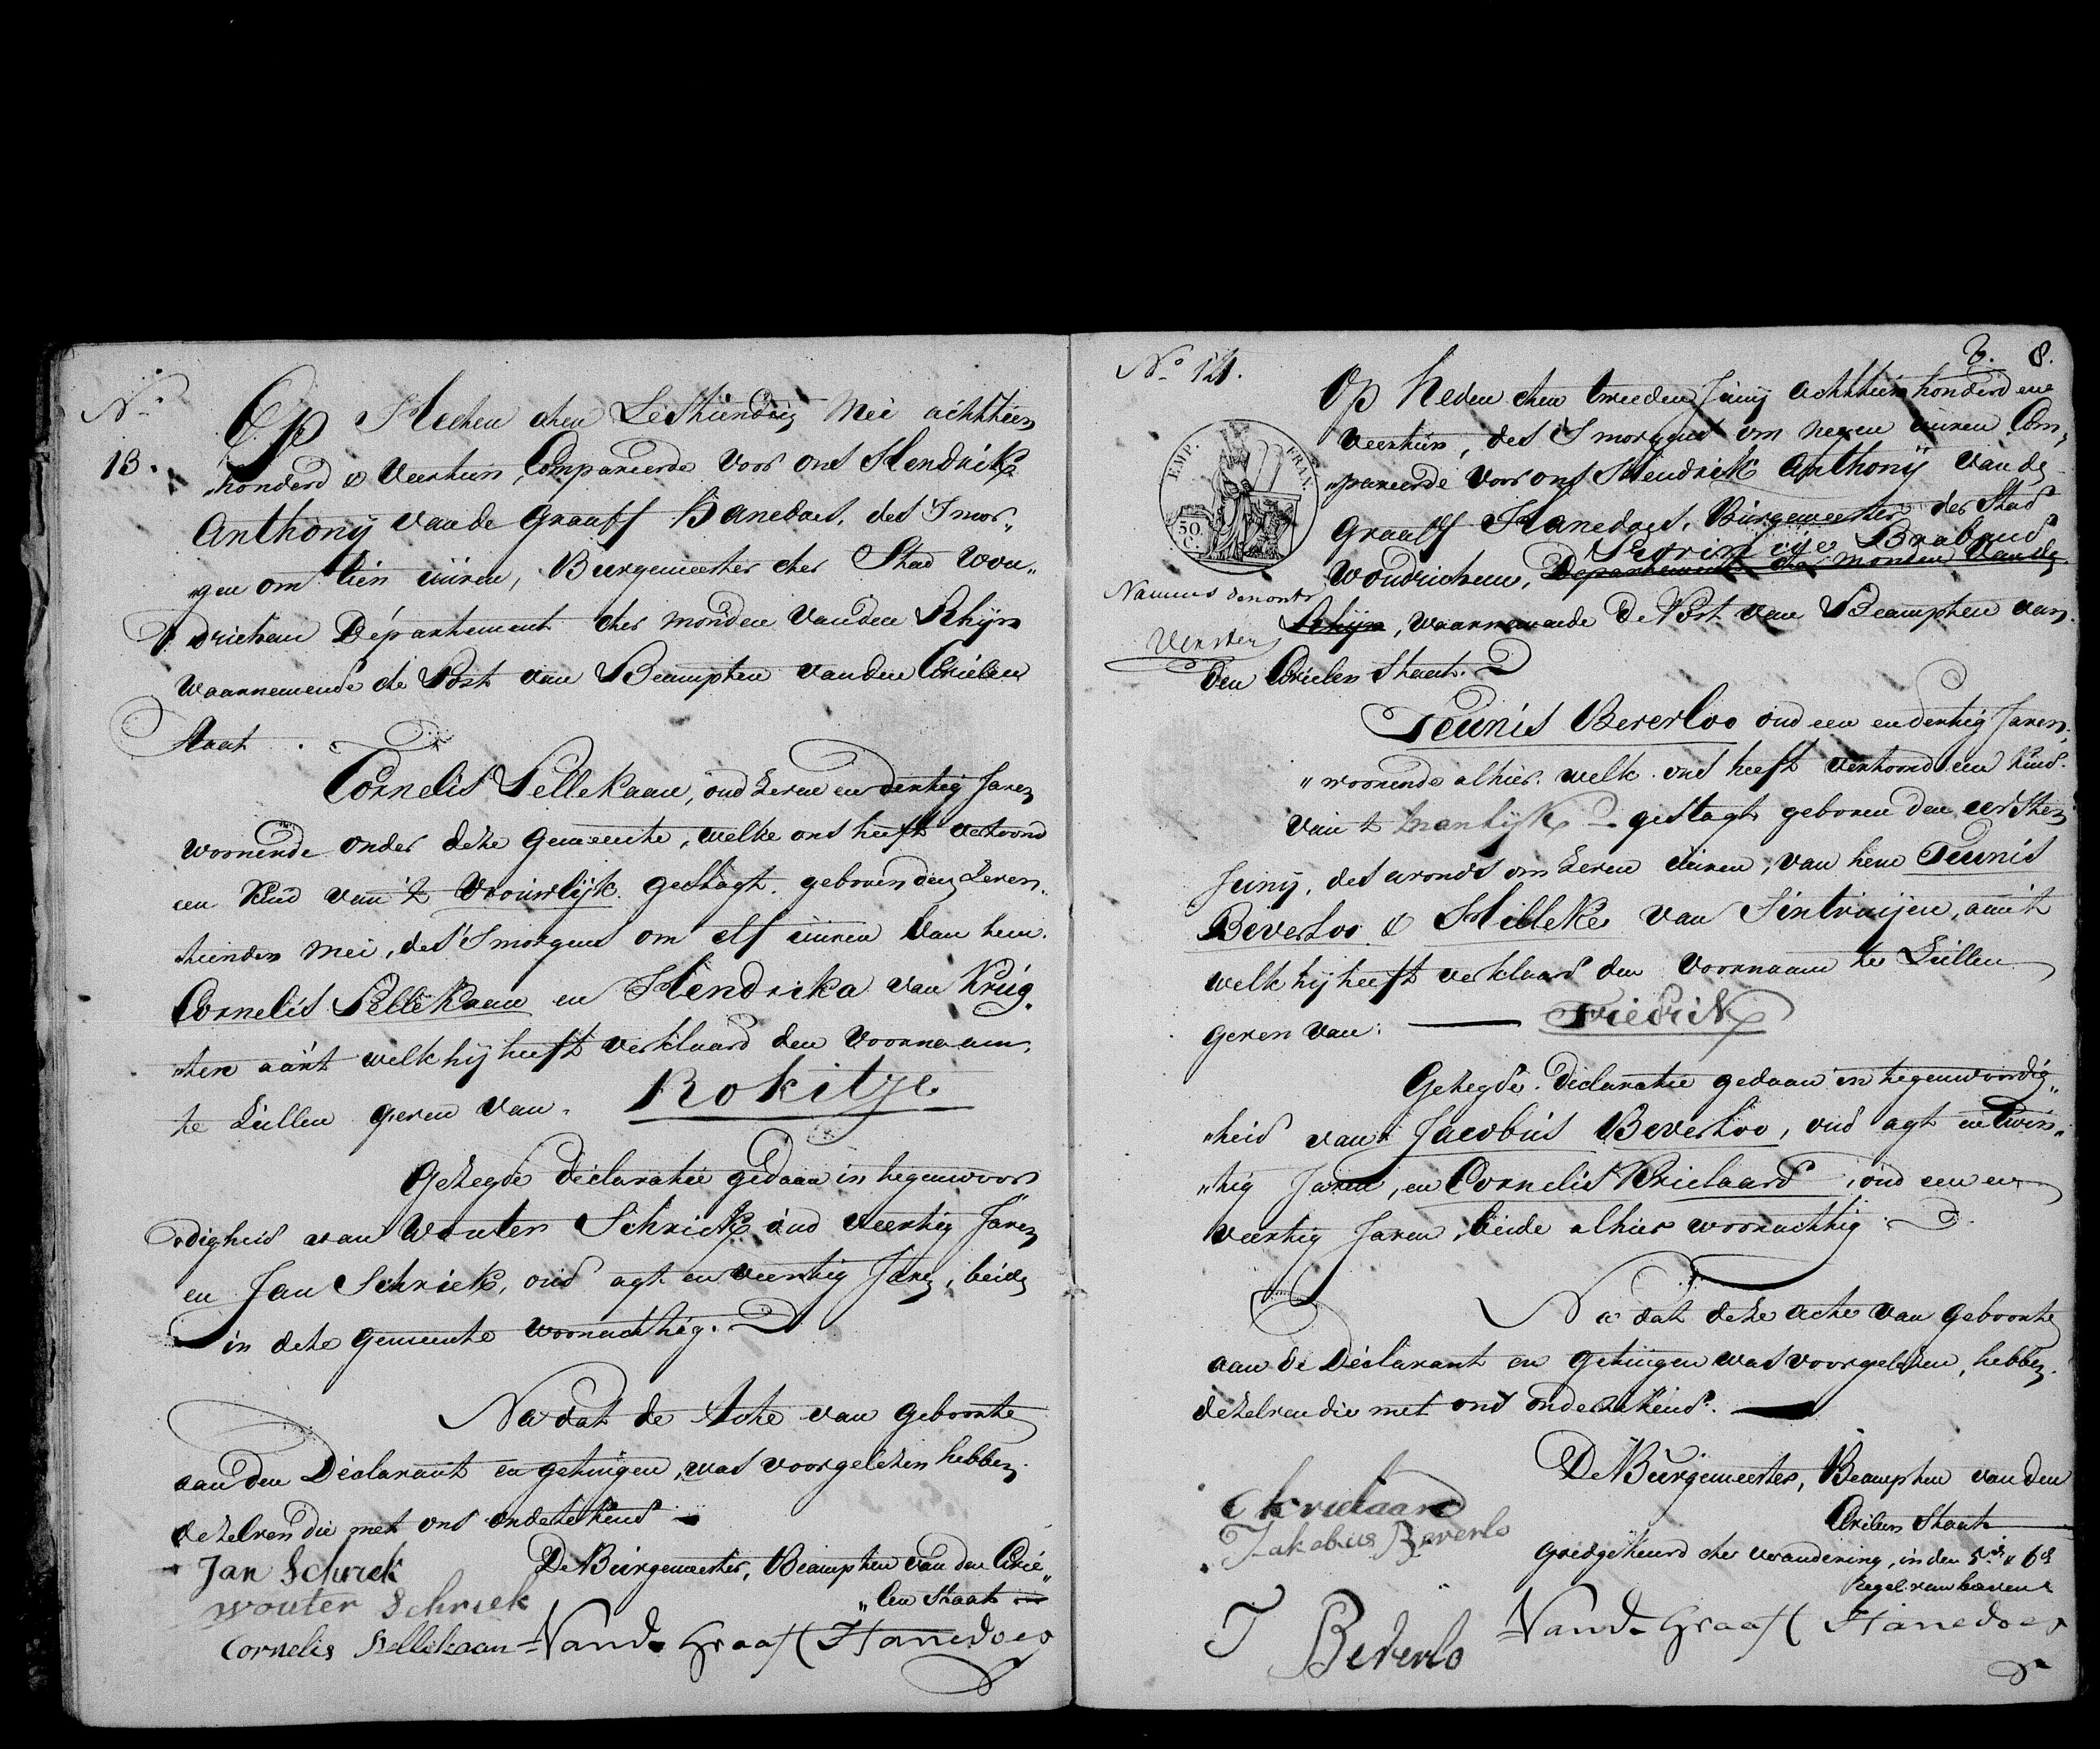 No
13.
Op Heden den Zesthienden Mei achthien
honderd & veerthien, Compareerde voor ons Hendrik
Anthonij van de Graaff Hanedoes, des Smor„
„gen om tien uuren, Burgemeester der Stad Wou„
drichem Département der monden van den Rhijn
waarnemende de Post van Beampten van den Civielen
Staat.
Cornelis Sellekaan, oud zeven en dertig Jaren
woonende onder deze gemeente, welke ons heeft vertoond
een Kind van 't Vrouwlijk geslagt. geboren den Zeven„
thienden Mei, des Smorgens om elf uuren van hem.
Cornelis Sellekaan en Hendrika van Krüg.
„ten aan't welk hij heeft verklaard den Voornaam,
te Zullen geven van. Rokitje.
Gezegde declaratie gedaan in tegenwoor
„digheid van Wouter Schriek oud veertig Jaren
en Jan Schriek, oud agt en veertig Jaren, beide
in deze gemeente woonachtig.
Na dat de Acte van geboorte
aan den Déclarant en getuigen, was voorgelezen hebben
dezelven die met ons ondetekend
Jan Schrek
De Burgemeester, Beampten van den Civie„
wouter Schriek
„len Staat
Cornelis Sellekaan
Vand Graaff Hanedoes
No 14.
8.
Op Heden den tweeden Junij achthien honderd en
veerthien, des Smorgens om negen uuren Com„
„pareerde voor ons Hendrik Anthonij van de
Graaff Hanedoes, Burgemeester der Stad
Provintie Braband
Woudrichem, Departement der monden van de
Rhijn, waarnemende De Post van Beampten van
den Civielen Staat.
EMP. FRAN.
50
C.
Teunis Beverloo oud een en dertig Jaren,
„woonende alhier. welk ons heeft vertoond een Kind.
van 't manlijk geslagt geboren den eersten
Junij, des avonds om Zeven uuren, van hem Teunis
Beverloo & Hilleke van Sintruijen, aan't
welk hij heeft verklaard den voornaam te Zullen
geven van: Friedrik
Gezegde Declaratie gedaan in tegenwoordig„
„heid van Jacobus Beverloo, oud agt en twin„
„tig Jaren, en Cornelis Krielaard, oud een en
veertig Jaren, beide alhier woonachtig.
Na dat deze acte van geboorte
aan de Déclarant en getuigen was voorgelezen, hebben
dezelven die met ons ondertekend.
De Burgemeester, Beampten van den
Civielen Staat
C Krielaard
Jakobus Beverlo
Goedgekeurd der verandering, in den 5de & 6de
regel van boven
T Beverlo
Vand Graaff Hanedoes